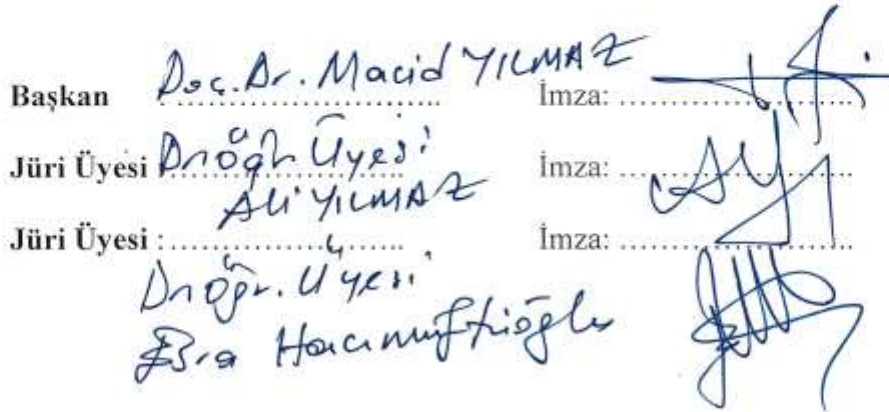 Başkan : Doç. Dr. Macid YILMAZ İmza: ....................
Jüri Üyesi Dr. Öğr. Üyesi İmza: ....................
Ali YILMAZ
Jüri Üyesi : .................... İmza: ....................
Dr. Öğr. Üyesi
Esra Hacımüftüoğlu